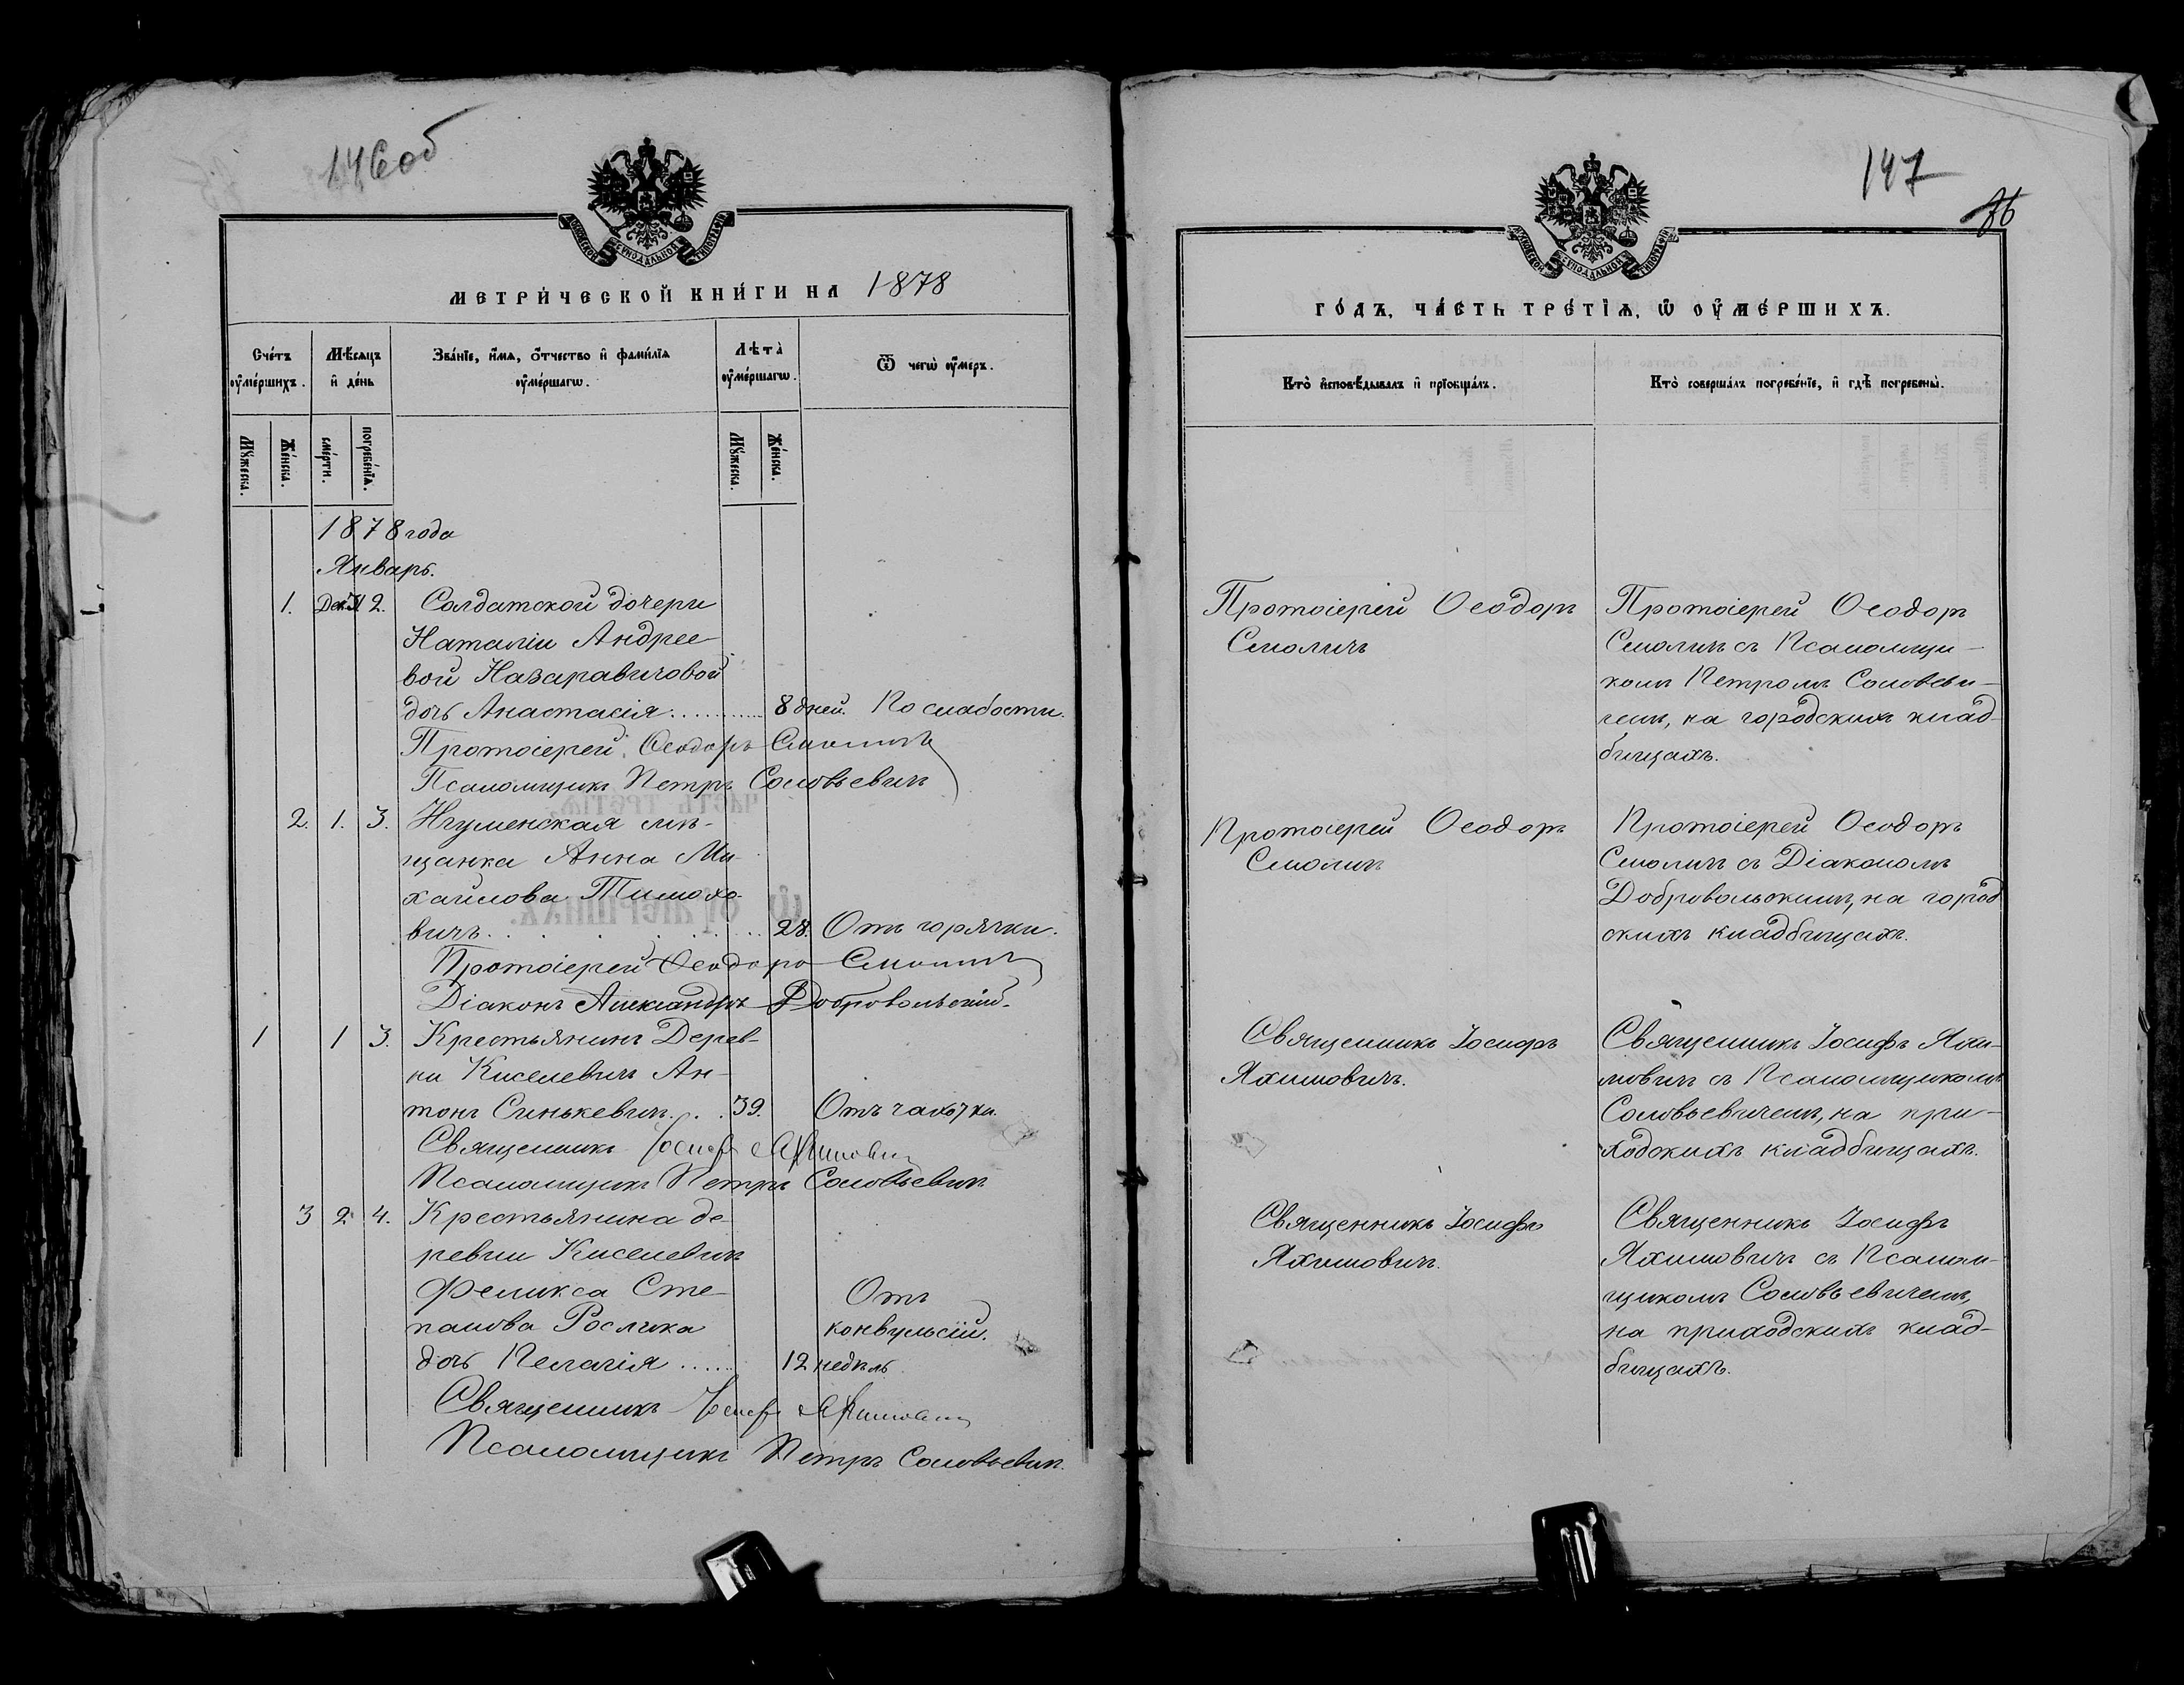 146об
МЕТРИ́ЧЕСКОЙ КНИ́ГИ НА 1878
Сче́тъ ᲂу҆ме́ршихъ.
Мѣ́сяцъ и҆ де́нь
Зва́нїе, и҆́мѧ, ѻ҆́тчество и҆ фами́лїѧ ᲂу҆ме́ршагѡ.
Лѣ́та ᲂу҆ме́ршагѡ.
Ѿ чегѡ̀ ᲂу҆́меръ.
Мꙋ́жеска.
Же́нска.
сме́рти.
погребе́нїѧ.
Мꙋ́жеска.
Же́нска.
1878 года
Январь.
1. Дек. 31 2. Солдатской дочери
Наталіи Андрее-
вой Назаравичовой
дочь Анастасія . . . . . . 8 дней. По слабости.
Протоіерей Ѳеодоръ Смоличъ
Псаломщикъ Петръ Соловьевичъ
2. 1. 3. Игуменская мѣ-
щанка Анна Ми-
хайлова Тимохо-
вичъ. . . . . . . 28. Отъ горячки.
Протоіерей Ѳеодоръ Смоличъ
Діаконъ Александръ Добровольскій.
1 1 3. Крестьянинъ Дерев-
ни Киселевичъ Ан-
тонъ Синькевичъ. . . 39. Отъ чахотки.
Священникъ Іосифъ Яхимовичъ
Псаломщикъ Петръ Соловьевичъ
3 2. 4. Крестьянина де-
ревни Киселевичъ
Феликса Сте-
панова Рослика
Отъ
конвульсій.
дочь Пелагія . . . . . . 12 недѣль
Священникъ Іосифъ Яхимовичъ
Псаломщикъ Петръ Соловьевичъ.
147
76
ГО́ДЪ, ЧА́СТЬ ТРЕ́ТЇѦ, Ѡ҆ ОУ҆МЕ́РШИХЪ.
Кто̀ и҆сповѣ́дывалъ и҆ прїобща́лъ.
Кто̀ соверша́лъ погребе́нїе, и҆ гдѣ̀ погребены̀.
Протоіерей Ѳеодоръ
Смоличъ
Протоіерей Ѳеодоръ
Смоличъ съ Псаломщи-
комъ Петромъ Соловьеви-
чемъ, на городскихъ клад-
бищахъ.
Протоіерей Ѳеодоръ
Смоличъ
Протоіерей Ѳеодоръ
Смоличъ съ Діакономъ
Добровольскимъ, на город
скихъ кладбищахъ.
Священникъ Іосифъ
Яхимовичъ.
Священникъ Іосифъ Яхи-
мовичъ съ Псаломщикомъ
Соловьевичемъ, на при-
ходскихъ кладбищахъ.
Священникъ Іосифъ
Яхимовичъ.
Священникъ Іосифъ
Яхимовичъ съ Псалом-
щикомъ Соловьевичемъ,
на приходскихъ клад-
бищахъ.